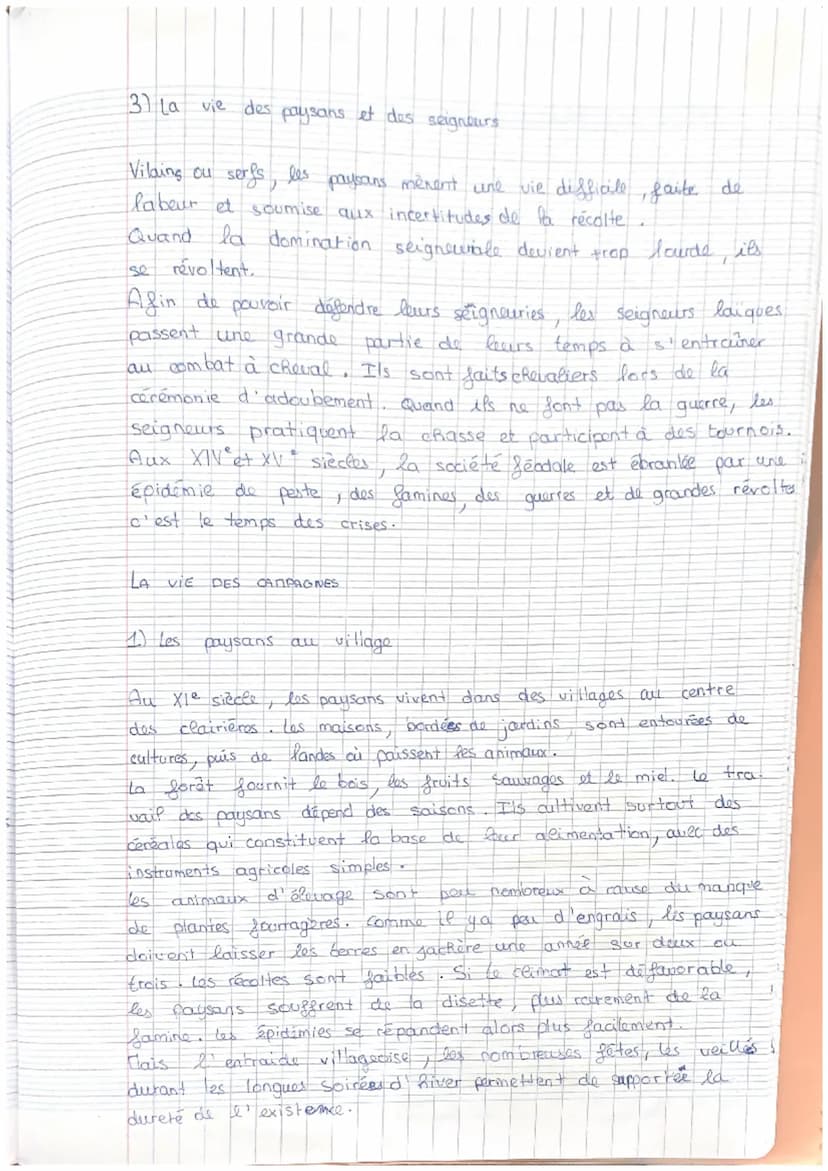 3) La vie des paysans et des seigneurs
Vilains ou serfs, les paysans mènent une vie difficile, faite de
labeur et soumise aux incertitudes de la récolte.
Quand la domination seigneuriale devient trop lourde, ils
se révoltent.
Afin de pouvoir défendre leurs seigneuries, les seigneurs laïques
passent une grande partie de leurs temps à s'entraîner
au combat à cheval. Ils sont faits chevaliers lors de la
cérémonie d'adoubement. Quand ils ne font pas la guerre, les
seigneurs pratiquent la chasse et participent à des tournois.
Aux XIVe et XVe siècles, la société féodale est ébranlée par une
épidémie de peste, des famines, des guerres et de grandes révoltes
c'est le temps des crises.
LA VIE DES CAMPAGNES
1) Les paysans au village
Au XIe siècle, les paysans vivent dans des villages au centre
des clairières. Les maisons, bordées de jardins sont entourées de
cultures, puis de landes où paissent les animaux.
La forêt fournit le bois, les fruits sauvages et le miel. Le tra-
vail des paysans dépend des saisons. Ils cultivent surtout des
céréales qui constituent la base de leur alimentation, avec des
instruments agricoles simples.
Les animaux d'élevage sont peu nombreux à cause du manque
de plantes fourragères. Comme il ya peu d'engrais, les paysans
doivent laisser les terres en jachère une année sur deux ou
trois. Les récoltes sont faibles. Si le climat est défavorable,
les paysans souffrent de la disette, plus rarement de la
famine. Les épidémies se répandent alors plus facilement.
Mais l'entraide villageoise, les nombreuses fêtes, les veillés
durant les longues soirées d'hiver permettent de supportée la
dureté de l'existence.